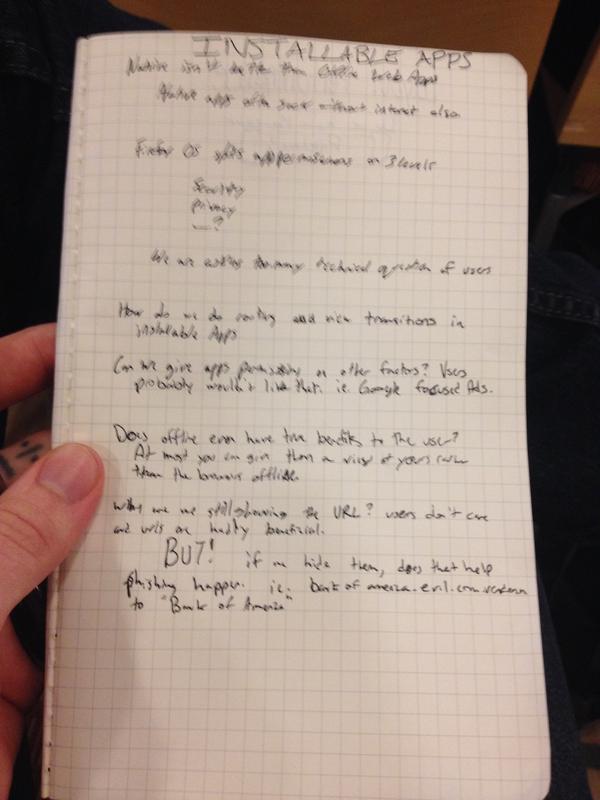 INSTALLABLE APPS
Native isn't better than Offline Web Apps
Native apps often suck without internet also
Firefox OS splits app permissions on 3 levels
Security
privacy
—?
We are asking too many technical question of users
How do we do routing and rich transitions in
installable Apps
Can we give apps permissions on other factors? Users
probably wouldn't like that. ie. Google focused Ads.
Does offline even have true benefits to the user?
At most you can give them a view at yours
than the browsers offline.
Why are we still showing the URL? users don't care
and urls are hardly beneficial.
BUT! if we hide them, does that help
phishing happen. ie. bank of america.evil.com
to "Bank of America"